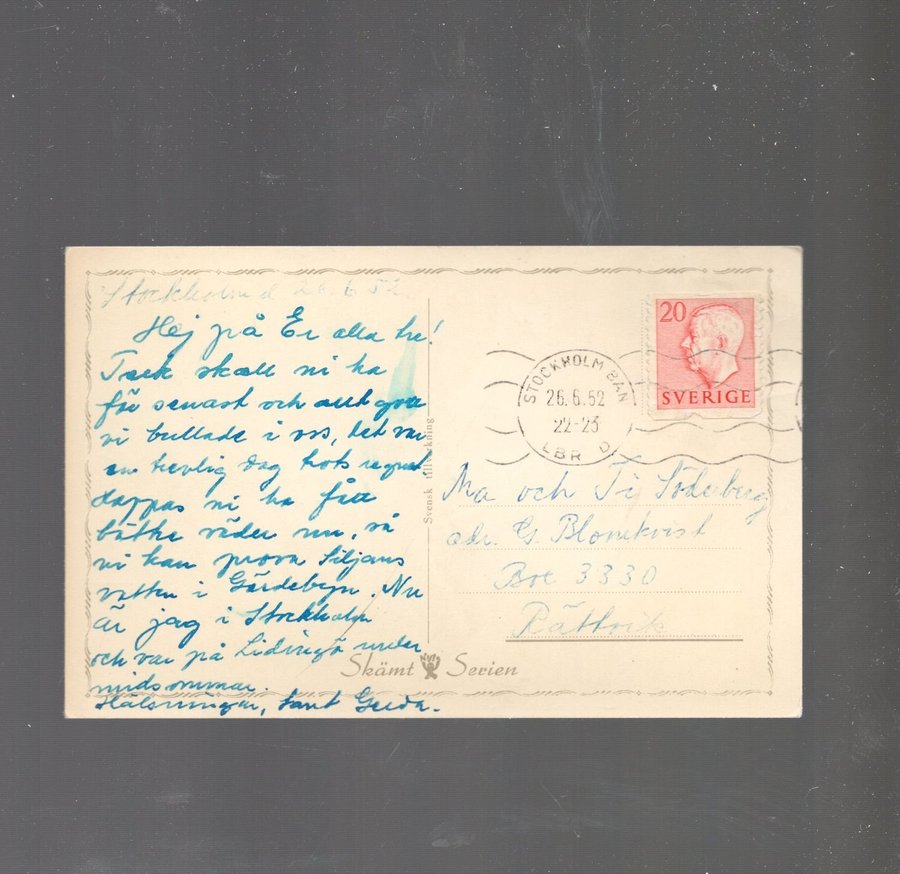 Stockholm d. 26.6.52.
Hej på Er alla tre!
Tack skall ni ha
för senast och allt gott
vi bullade i oss, det var
en trevlig dag trots regnet
Hoppas ni ha fått
bättre väder nu, så
ni kan prova Siljans
vatten i Gärdebyn. Nu
är jag i Stockholm
och var på Lidingö under
midsommar.
Hälsningar, tant Gerda.
Svensk tillverkning
20
SVERIGE
STOCKHOLM BAN
26.6.52
22-23
LBR D
Ma och Söderberg
adr. G. Blomkvist
Box 3330
Rättvik
Skämt Serien